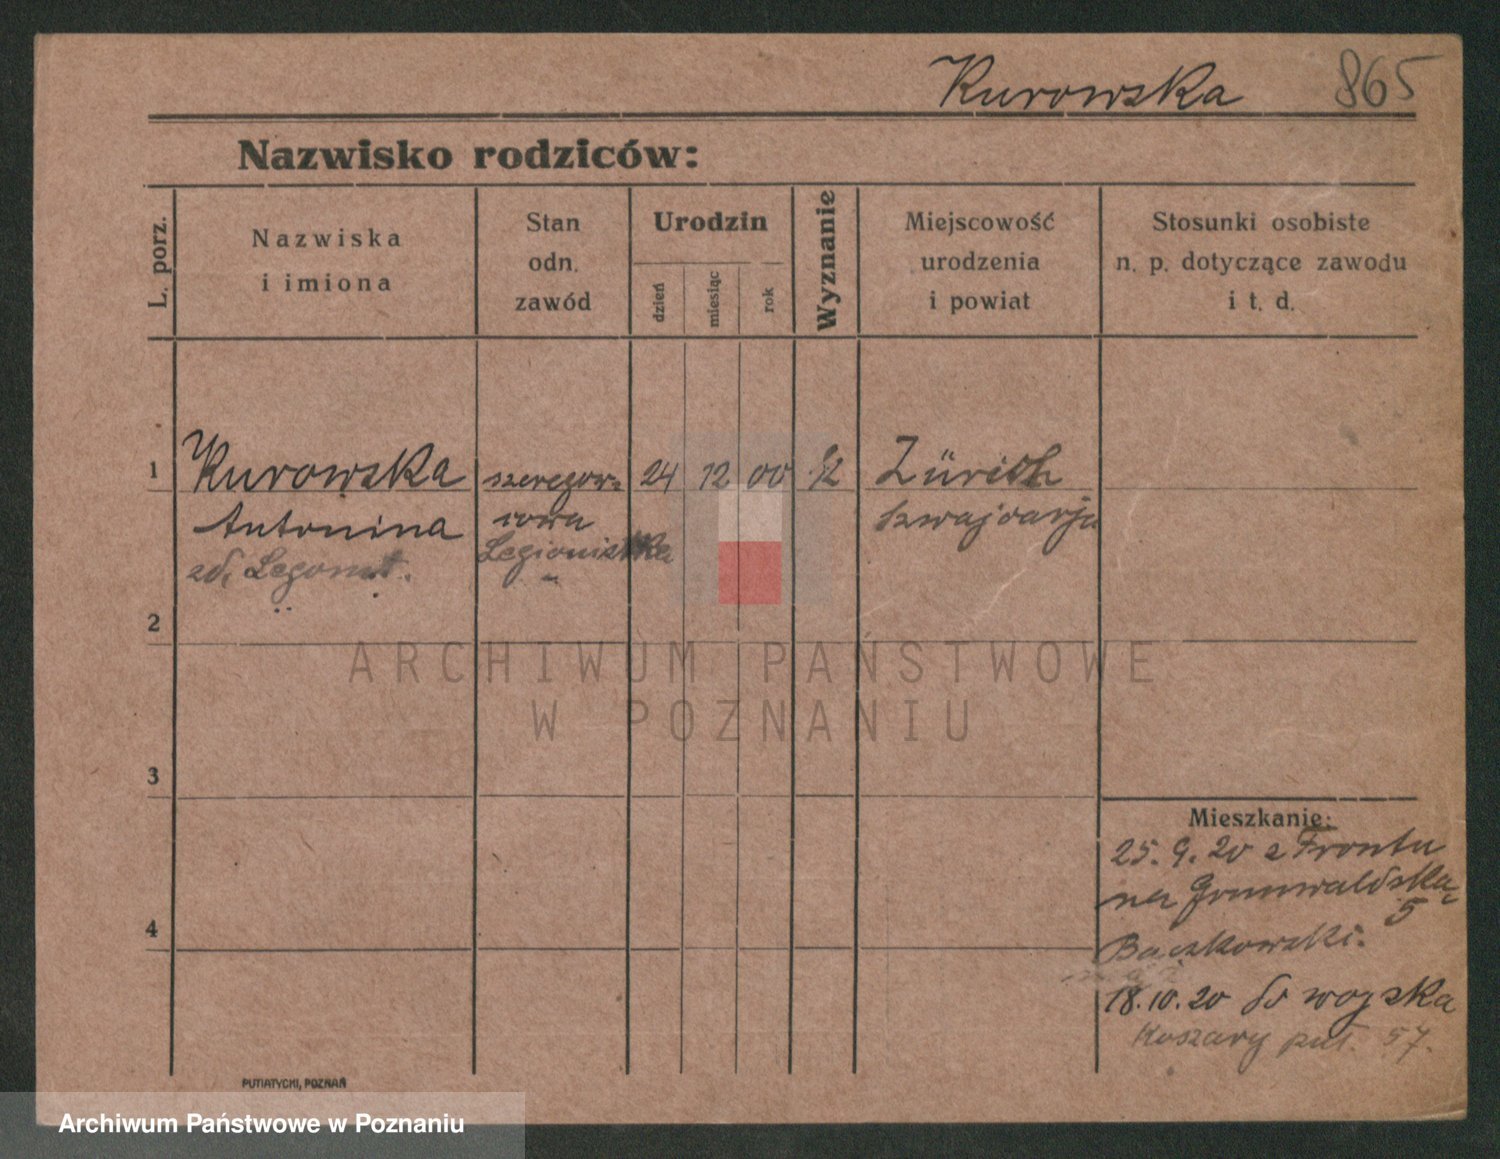 Kurowska 865
Nazwisko rodziców:
L. porz.
Nazwiska
i imiona
Stan
odn.
zawód
Urodzin
dzień
miesiąc
rok
Wyznanie
Miejscowość
urodzenia
i powiat
Stosunki osobiste
n. p. dotyczące zawodu
i t. d.
1 Kurowska szeregow= 24 12 00 Zürich
Antonina cowa Szwajcarja
Legionistka
2
3
4
Mieszkanie:
25. 9. 20 z Frontu
na Grunwaldska
5
Baczkowski.
18.10.20 do wojska
Koszary 57.
PUTIATYCKI, POZNAŃ
ARCHIWUM PAŃSTWOWE
W POZNANIU
Archiwum Państwowe w Poznaniu